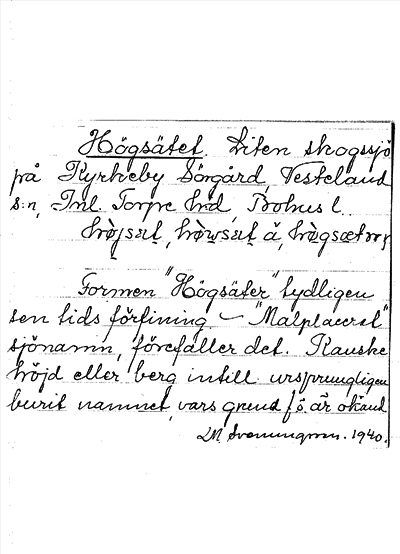 Högsätet. Liten skogssjö
på Kyrkeby Sörgård, Vesteland
s:n, Inl. Torpe hrd, Bohus l.
Formen "Högsäter" tydligen
sen tids förfining – "Malplacerat"
sjönamn, förefaller det. Kanske
höjd eller berg intill ursprungligen
burit namnet, vars grund f.ö. är okänd
1940.